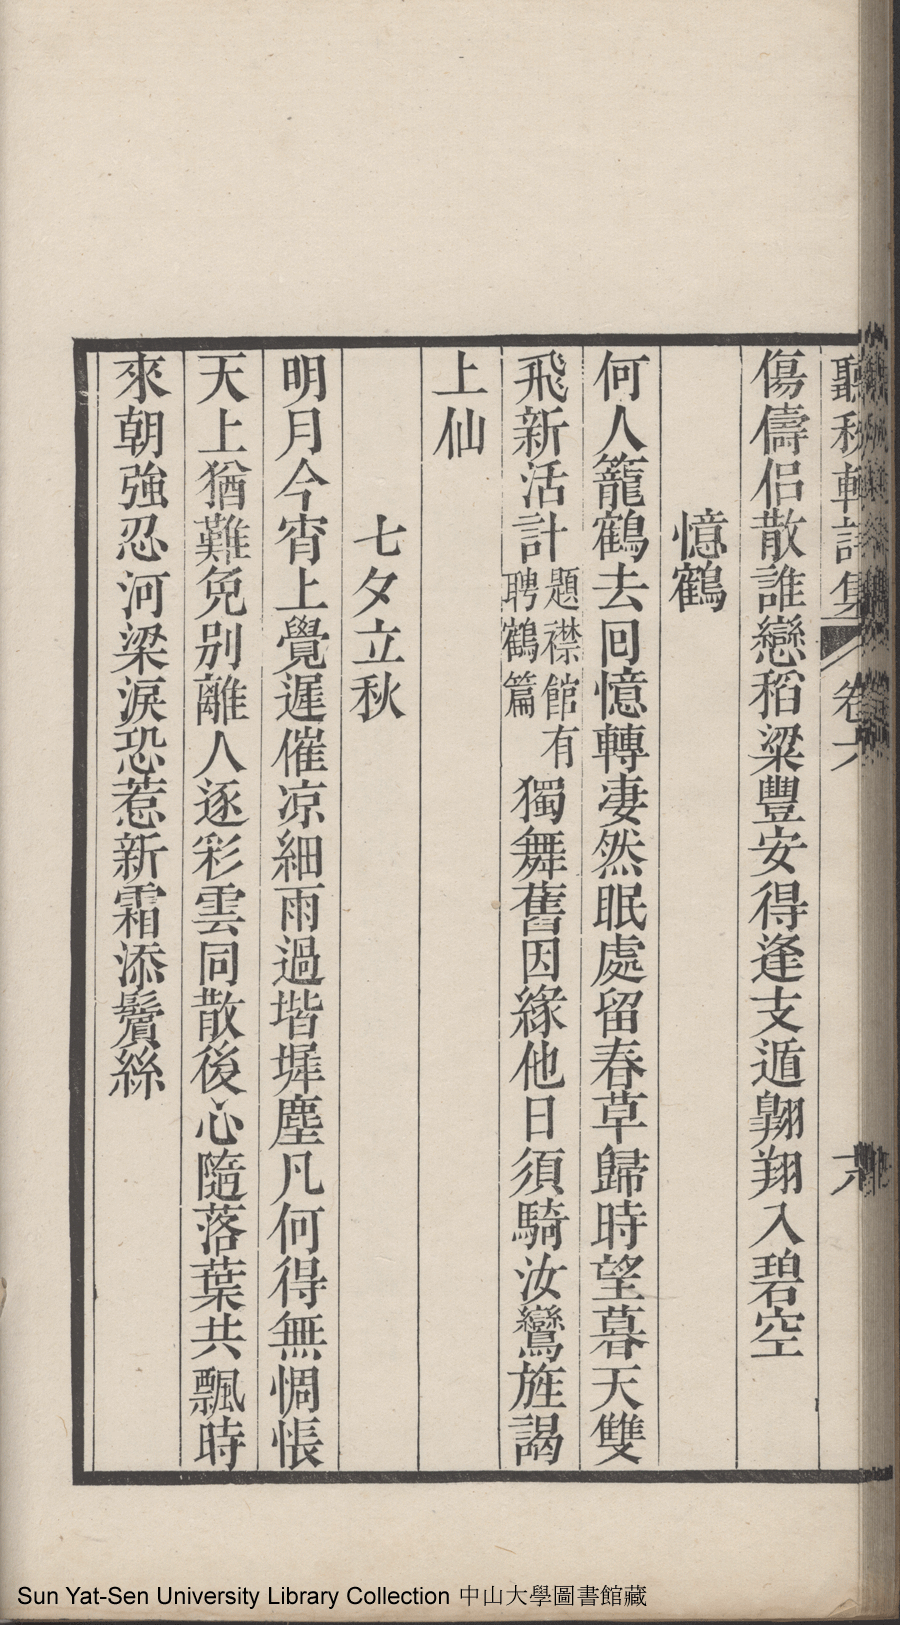 聽秋軒詩集 卷六 六
傷儔侶散誰戀稻粱豐安得逢支遁翱翔入碧空
憶鶴
何人籠鶴去回憶轉淒然眠處留春草歸時望暮天雙
飛新活計題襟館有聘鶴篇獨舞舊因緣他日須騎汝鸞旌謁
上仙
七夕立秋
明月今宵上覺遲催凉細雨過堦墀塵凡何得無惆悵
天上猶難免別離人逐彩雲同散後心隨落葉共飄時
來朝強忍河梁淚恐惹新霜添鬢絲
Sun Yat-Sen University Library Collection 中山大學圖書館藏